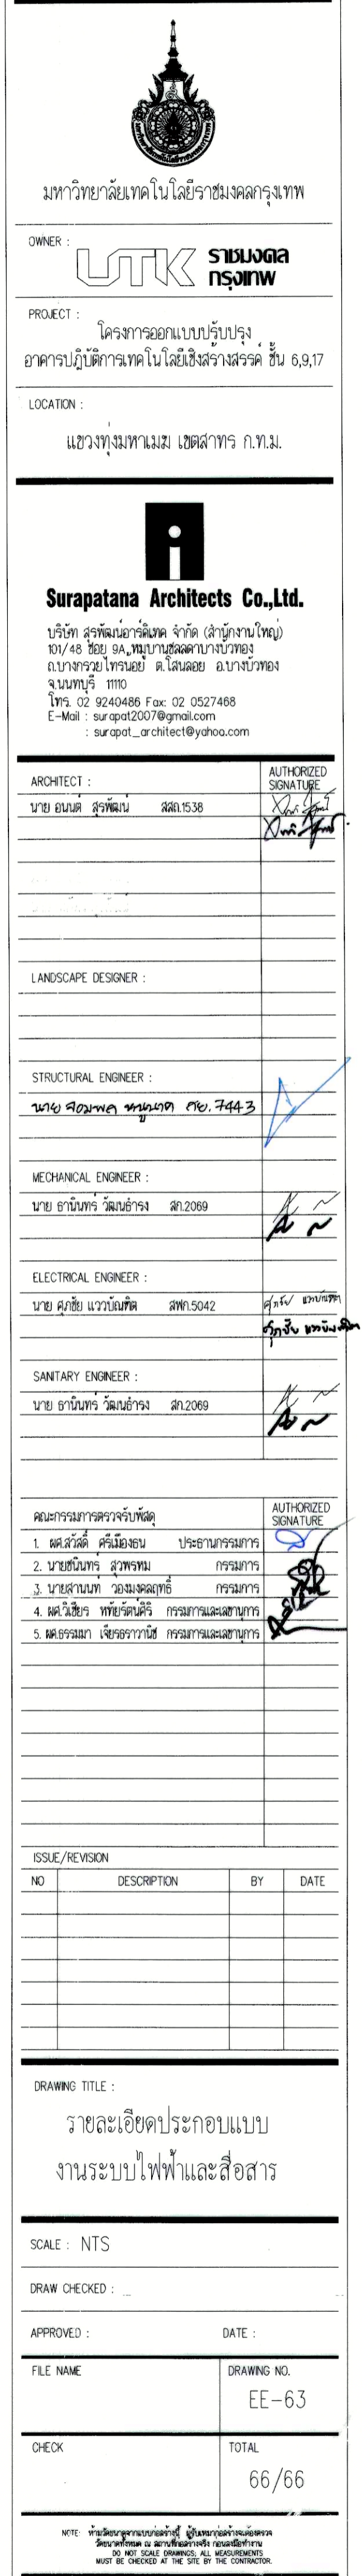 มหาวิทยาลัยเทคโนโลยีราชมงคลกรุงเทพ
OWNER :
UTK ราชมงคล
กรุงเทพ
PROJECT :
โครงการออกแบบปรับปรุง
อาคารปฏิบัติการเทคโนโลยีเชิงสร้างสรรค์ ชั้น 6,9,17
LOCATION :
แขวงทุ่งมหาเมฆ เขตสาทร ก.ท.ม.
Surapatana Architects Co.,Ltd.
บริษัท สุรพัฒน์อาร์คิเทค จำกัด (สำนักงานใหญ่)
101/48 ซอย 9A หมู่บ้านชลลดาบางบัวทอง
ถ.บางกรวยไทรน้อย ต.โสนลอย อ.บางบัวทอง
จ.นนทบุรี 11110
โทร. 02 9240486 Fax: 02 0527468
E-Mail : surapat2007@gmail.com
: surapat_architect@yahoo.com
ARCHITECT :
AUTHORIZED
SIGNATURE
นาย อนนต์ สุรพัฒน์ สสถ.1538
LANDSCAPE DESIGNER :
STRUCTURAL ENGINEER :
นาย จอมพล หนูนาค สย. 7443
MECHANICAL ENGINEER :
นาย ธานินทร์ วัฒนธำรง สก.2069
ELECTRICAL ENGINEER :
นาย ศุภชัย แววบัณฑิต สฟก.5042
ศุภชัย แววบัณฑิต
ศุภชัย แววบัณฑิต
SANITARY ENGINEER :
นาย ธานินทร์ วัฒนธำรง สก.2069
คณะกรรมการตรวจรับพัสดุ
AUTHORIZED
SIGNATURE
1. ผศ.สวัสดิ์ ศรีเมืองธน ประธานกรรมการ
2. นายชนินทร์ สุวพรหม กรรมการ
3. นายสานนท์ วองมงคลฤทธิ์ กรรมการ
4. ผศ.วิเชียร หทัยรัตน์ศิริ กรรมการและเลขานุการ
5. ผศ.ธรรมมา เจียรธราวานิช กรรมการและเลขานุการ
ISSUE/REVISION
NO DESCRIPTION BY DATE
DRAWING TITLE :
รายละเอียดประกอบแบบ
งานระบบไฟฟ้าและสื่อสาร
SCALE : NTS
DRAW CHECKED :
APPROVED : DATE :
FILE NAME DRAWING NO.
EE-63
CHECK TOTAL
66/66
NOTE: ห้ามวัดขนาดจากแบบก่อสร้างนี้ ผู้รับเหมาก่อสร้างจะต้องตรวจ
วัดขนาดทั้งหมด ณ สถานที่ก่อสร้างจริง ก่อนลงมือทำงาน
DO NOT SCALE DRAWINGS; ALL MEASUREMENTS
MUST BE CHECKED AT THE SITE BY THE CONTRACTOR.